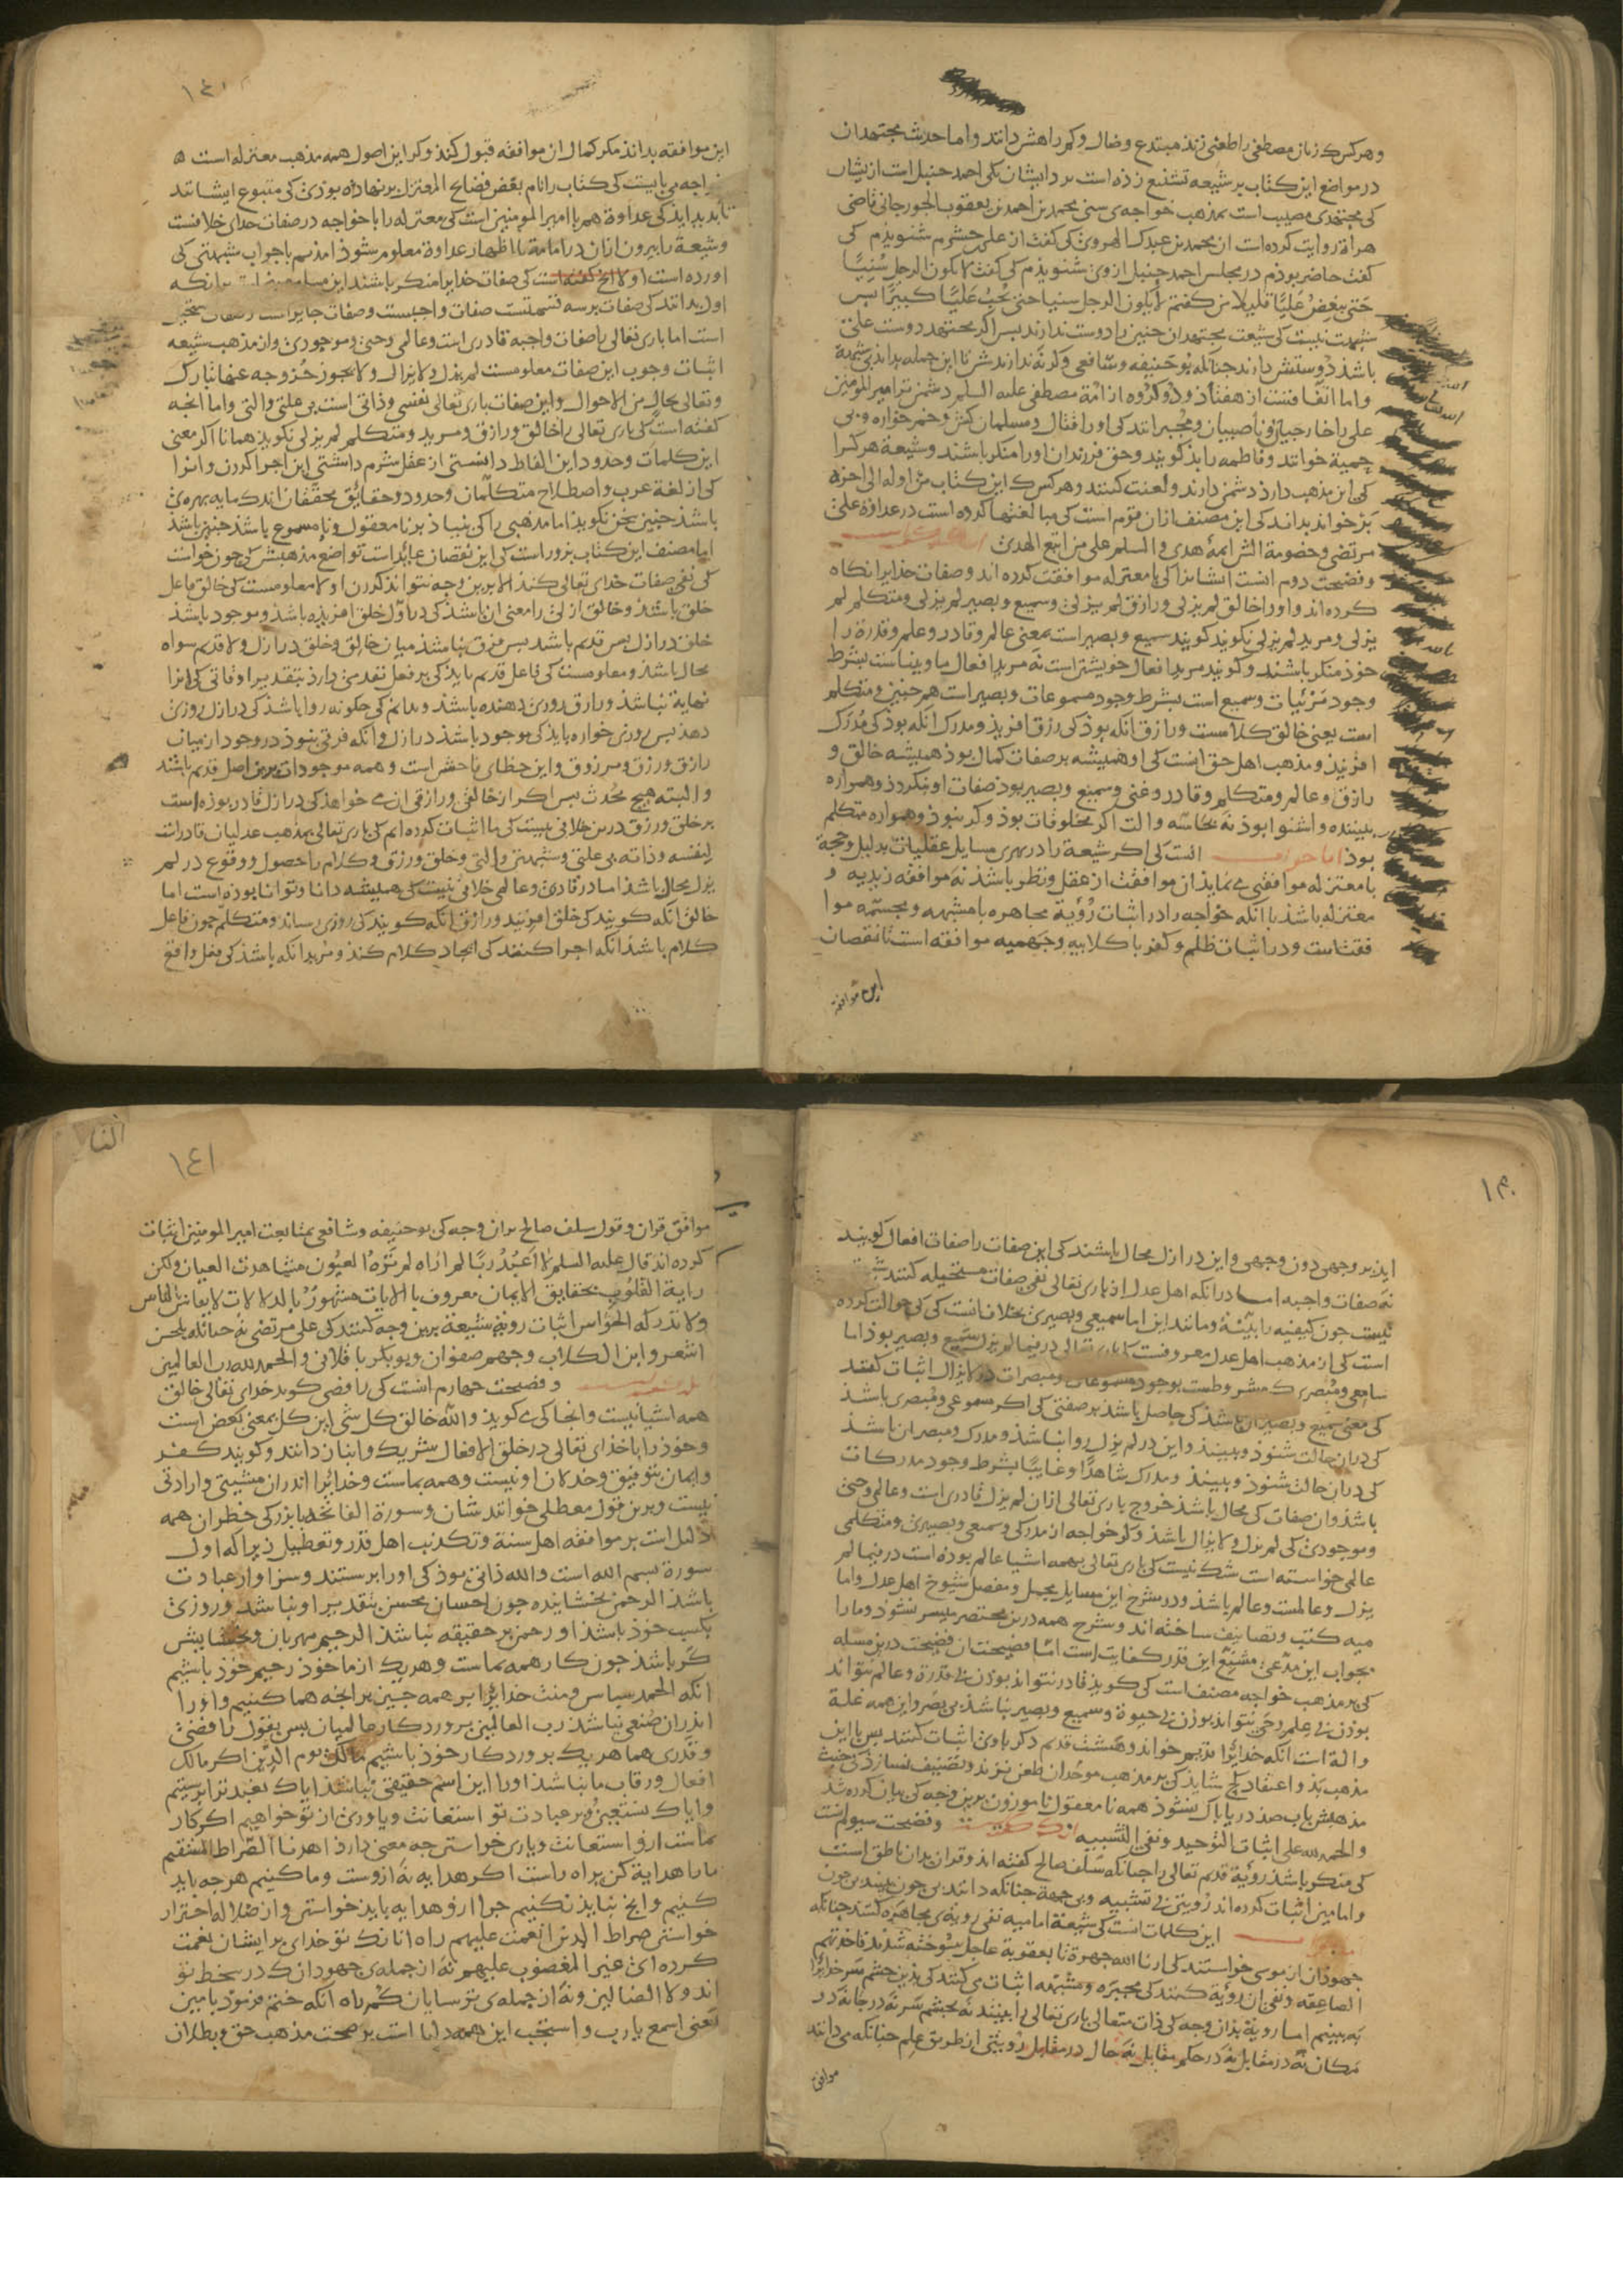 وهرکس که زنان مصطفی را طعنی زند مبتدع وضال و کمراهش دانند واما حدیث مجتهدان
در مواضع این کتاب بر شیعه تشنیع زذه است بر ذایشان یکی احمد حنبل است از یشان
کی مجتهدی مصیب است بمذهب خواجه‌ی سنی محمد بن احمد بن یعقوب الجورجانی قاضی
هراة روایت کرده است از محمد بن عبدک الهروی کی کفت از علی حشرم شنویذم کی
کفت حاضر بوذم در مجلس احمد حنبل ازوی شنویذم کی کفت لا یکون الرجل سُنیًا
حَتی یبغِضُ عَلیًا قلیلا من کفتم لا یکون الرجل سنیا حتی یُحِبُ عَلیًا کبیرًا بس
شبهت نیست کی شیعت مجتهدان جنین را دوست ندارند بس اکر مجتهد دوست علی
باشذ دوستش دارند جنانکه بوحنیفه وشافعی وکرنه ندارندش تا این جمله بداند بی شبهة
واما اتفاقست از هفتاد ودو کروه از امّة مصطفی علیه السلم دشمن تر امیرالمومنین
علی را خارجیان و ناصبیان ومجُبرانند کی اورا قتال ومسلمان کش وخمر خواره وبی
حمیة خوانند وفاطمه را بذ کویند وحق فرزندان اورا منکر باشند وشیعة هرکرا
کی این مذهب دارذ دشمن دارند ولعنت کنند وهرکس که این کتاب من اوله الی اخره
بر خواند بداند کی این مصنف ازان قوم است کی مبالغتها کرده است در عداوة علی
مرتضی وخصومة اثر ایمهٔ هدی والسلم علی من اتبع الهدی
وفضیحت دوم انست ایشانرا کی با معتزله موافقت کرده اند وصفات خدایرا نکاه
کرده اند واورا خالق لم یزلی ورازق لم یزلی وسمیع وبصیر لم یزلی ومتکلم لم
یزلی ومرید لم یزلی نکویند کویند سمیع وبصیر است بمعنی عالم وقادر وعلم وقدرة را
خوذ منکر باشند وکویند مرید افعال خویشتن است نه مرید افعال ما وبیناست بشرط
وجود مَرئیات وسمیع است بشرط وجود مسموعات وبصیر است هم جنین ومتکلم
است یعنی خالق کلامست ورازق انکه بوذ کی رزق افریذ ومدرک انکه بوذ کی مُدرَک
افریذ ومذهب اهل حق انست کی او همیشه بر صفات کمال بوذ همیشه خالق و
رازق وعالم ومتکلم وقادر وغنی وسمیع وبصیر بوذ صفات او بنکردذ وهمواره
بیننده واشنوا بوذ نه بحاسّه والت اکر مخلوقات بوذ وکر نبوذ وهمواره متکلم
بوذ اما جواب انست کی اکر شیعة را در بهری مسایل عقلیات بدلیل وحجة
با معتزله موافقتی می نماید ان موافقت از عقل ونظر باشذ نه موافقه زیدیه و
معتزله باشذ با انکه خواجه را در اثبات رُؤیة مجاهره با مشبهه ومجسّمه موا
فقت است ودر اثبات ظلم وکفر با کلابیه وجهمیه موافقه است تا نقصان
این موافقة
این موافقه بداند مکر کمال ان موافقه قبول کند وکر این اصول همه مذهب معتزله است
خواجه می بایست کی کتاب را نام بعض فضایح المعتزله بر نهاذه بوذی کی متبوع ایشانند
تا بدید اید کی عداوة هم با امیر المومنین است کی معتزله را با خواجه در صفات خدای خلافست
وشیعة را بیرون ازان در امامة با اظهار عداوة معلوم شوذ امذیم با جواب شبهتی کی
اورده است اولا انج کفته است کی صفات خدایرا منکر باشند این مسلم نیست برانکه
اول بداند کی صفات بر سه قسمتست صفات واجبست وصفات جایز است وصفات مستحیل
است اما باری تعالی با صفات واجبه قادری است وعالمی وحیی وموجودی وان مذهب شیعه
اثبات وجوب این صفات معلومست لم یزل ولا یزال ولا یجوز خُرُوجه عنها تبارک
وتعالی بحال من الاحوال واین صفات باری تعالی نفسی وذاتی است بی علتی والتی واما انجه
کفته است کی باری تعالی را خالق ورازق ومرید ومتکلم لم یزلی نکویند همانا اکر معنی
این کلمات وحدود این الفاظ دانستی از عقل شرم داشتی این اجرا کردن وانرا
کی از لغة عرب واصطلاح متکلمان وحدود وحقایق محققان اندک مایه بهره‌ی
باشذ جنین سخن نکوید اما مذهبی را کی بنیاد بر نا معقول ونا مسموع باشذ جنین باشذ
اما مصنف این کتاب بزور است کی این نقصان عایذ است تواضع مذهبش کی جون خواست
کی نفی صفات خدای تعالی کند الا برین وجه نتواند کردن اولا معلومست کی خالق فاعل
خلق باشذ وخالق ازلی را معنی ان باشذ کی در اول خلق افریذه باشذ وموجود باشذ
خلق در ازل بس قدیم باشد بس فرق نباشذ میان خالق وخلق در ازل ولا قدیم سواه
محال باشذ ومعلومست کی فاعل قدیم باید کی بر فعل تقدمی دارذ بتقدیر اوقاتی کی انرا
نهایة نباشذ ورازق روزی دهنده باشذ وبدانم کی جکونه روا باشذ کی در ازل روزی
دهد بس روزی خواره باید کی موجود باشذ در ازل وانکه فرقی نبوذ در وجود از میان
رازق ورزق ومرزوق واین خطای فاحش است وهمه موجودات برین اصل قدیم باشند
والبته هیج محُدث بس اکر از خالقی ورازقی ان می خواهذ کی در ازل قادر بوذه است
بر خلق ورزق درین خلافی نیست کی ما اثبات کرده ایم کی باری تعالی بمذهب عدلیان قادرات
لنفسه وذاته بی علتی وشبهتی والتی وخلق ورزق وکلام را حصول ووقوع در لم
یزل محال باشذ اما در قادری وعالمی خلافی نیست کی همیشه دانا وتوانا بوذه است اما
خالق انکه کویند کی خلق افریند ورازق انکه کویند کی روزی رساند ومتکلم جون فاعل
کلام باشذ انکه اجرا کنند کی ایجاد کلام کند ومرید انکه باشذ کی فعل واقع
١٣٠
اید بر وجهی دون وجهی واین در ازل محال باشند کی این صفات را صفات افعال کویند
نه صفات واجبه اما درانکه اهل عدل از باری تعالی نفی صفات مستحیله کنند
نیست جون کیفیة وابنیّة ومانند این اما سمیعی وبصیری بخلاف انست کی کی حوالت کرده
است کی از مذهب اهل عدل معروفست کی باری تعالی در فیما لم یزل سمیع وبصیر بوذ اما
سامعی ومُبصری که مشروطست بوجود مسموعات ومبصرات در لا یزال اثبات کفتند
کی معنی سمیع وبصیر ان باشذ کی حاصل باشذ بر صفتی کی اکر مسموعی ومُبصری باشذ
کی دران حالت شنوذ وبیند واین در لم یزل روا باشذ ومدرک ومبصر ان باشذ
کی دران حالت شنوذ وبیند ومدرک شاهدًا وغایبًا بشرط وجود مدرکات
باشذ وان صفات کی محال باشذ خروج باری تعالی ازان لم یزل قادری است وعالمی وحیی
وموجودی کی لم یزل ولا یزال باشذ وکر خواجه از مدرکی وسمیعی وبصیری ومتکلمی
عالمی خواسته است شک نیست کی باری تعالی بهمه اشیا عالم بوذه است در فیما لم
یزل وعالمست وعالم باشذ ودر شرح این مسایل مجمل ومفصل شیوخ اهل عدل واما
میه کتب وتصانیف ساخته اند وشرح همه درین مختصر میسر نشوذ ومارا
بجواب این مدّعی مشنّع این قدر کفایت است امّا فضیحت ان فضیحت درین مسله
کی بر مذهب خواجه مصنف است کی کویذ قادر نتواند بوذن بی قدرة وعالم نتواند
بوذن بی علم وحی نتواند بوذن بی حیوة وسمیع وبصیر نباشذ بی بصر واین همه علة
والة است انکه خدایرا قدیم خواند وهشت قدیم دکر باوی اثبات کنند بس با این
مذهب بذ واعتقاد کج شاید کی بر مذهب موحّدان طعن نزند وتصنیف نسازذ
مذهبش باب صد دریا پاک نشوذ همه نا معقول نا موزون برین وجه کی بیان کرده شد
والحمد لله علی اثبات التوحید ونفی التشبیه وفضیحت سیوم انست
کی منکر باشذ رویة قدیم تعالی را جنانکه سلف صالح کفته اند وقران بدان ناطق است
واما مین اثبات کرده اند رؤیتی بی تشبیه وبی جهة جنانکه دانند بی جون بینند بی جون
این کلمات انست کی شیعة امامیه نفی رویة‌ی مجاهره کنند جنانکه
جهوذان از موسی خواستند کی ارنا الله جهرة تا بعقوبة عاجل سوخته شدند فاخذتهم
الصاعقه ونفی ان رؤیة کنند کی مجبره ومشبّهه اثبات می کنند کی بذین جشم سَر خدایرا
به بینیم اما رویة بذان وجه کی ذات متعالی باری تعالی را بینند نه بجشم سَر نه در جا نه در
مکان نه در مقابل نه در حکم مقابل نه حال در مقابل رؤیتی از طریق علم جنانکه می دانند
موافق
١٤١
موافق قران وقول سلف صالح بران وجه کی بوحنیفه وشافعی بمتابعت امیر المومنین اثبات
کرده اند قال علیه السلم لا اَعبُدُ رَبًّا لم اراه لم تَرَهُ العیُون مشاهدة العیان ولکن
رایة القلُوب بحقایق الایمان معروف بالایات مشهورٌ بالدلالات لا یقاس بالناس
ولا تدرکه الحَواس اثبات رویة شیعة برین وجه کنند کی علی مرتضی نه جنانکه بلحسن
اشعر وابن الکلاب وجهم صفوان وبوبکر باقلانی والحمد لله رب العالمین
وفضیحت جهارم انست کی رافضی کوید خدای تعالی خالق
همه اشیا نیست وانجا کی می کویذ والله خالق کل شی این کل بمعنی بعض است
وخوذ را با خدای تعالی در خلق الافعال شریک وانباز دانند وکویند کفر
وایمان بتوفیق وخذلان او نیست وهمه بماست وخدایرا اندران مشیتی وارادتی
نیست وبرین قول معطلی خوانند شان وسورة الفاتحه بابزرکی خطران همه
دلیل است بر موافقه اهل سنة وتکذیب اهل قدر وتعطیل زیرا که اول
سورة بسم الله است والله ذاتی بوذ کی اورا برستند وسزاوار عبادت
باشذ الرحمن بخشاینده جون احسان محسن بتقدیر او نباشد وروزی
بکسب خوذ باشذ او رحمن بر حقیقه نباشذ الرحیم مهربان وبخشایش
کر باشذ جون کار همه بماست وهریک از ما خوذ رحیم خوذ باشیم
انکه الحمد سباس ومنت خدایرا بر همه جیز بر انجه هما کنیم واورا
اندران صُنعی نباشذ رب العالمین بروردکار عالمیان بس بقول رافضی
وقدری هما هریک بروردکار خوذ باشیم مالک یوم الدین اکر مالک
افعال ورقاب ما نباشذ اورا این اسم حقیقی نباشذ ایاک نعبد ترا برستیم
وایاک نستعین وبر عبادت تو استعانت ویاوری از تو خواهیم اکر کار
بماست ازو استعانت ویاری خواستن جه معنی دارذ اهدنا الصراط المستقیم
مارا هدایة کن براه راست اکر هدایه نه ازوست وما کنیم هرجه باید
کنیم وانج نباید نکنیم جرا ازو هدایه باید خواستن واز ضلاله احتراز
خواستن صراط الذین انعمت علیهم راه انانک تو خدای بر ایشان نعمت
کرده ای غیر المغضوب علیهم نه از جمله‌ی جهودانک در سخط تو
اند ولا الضالین ونه از جمله‌ی ترسایان کمراه انکه ختم فرموذ بامین
یعنی اسمع یا رب واستجب این همه دلیل است بر صحت مذهب حق وبطلان